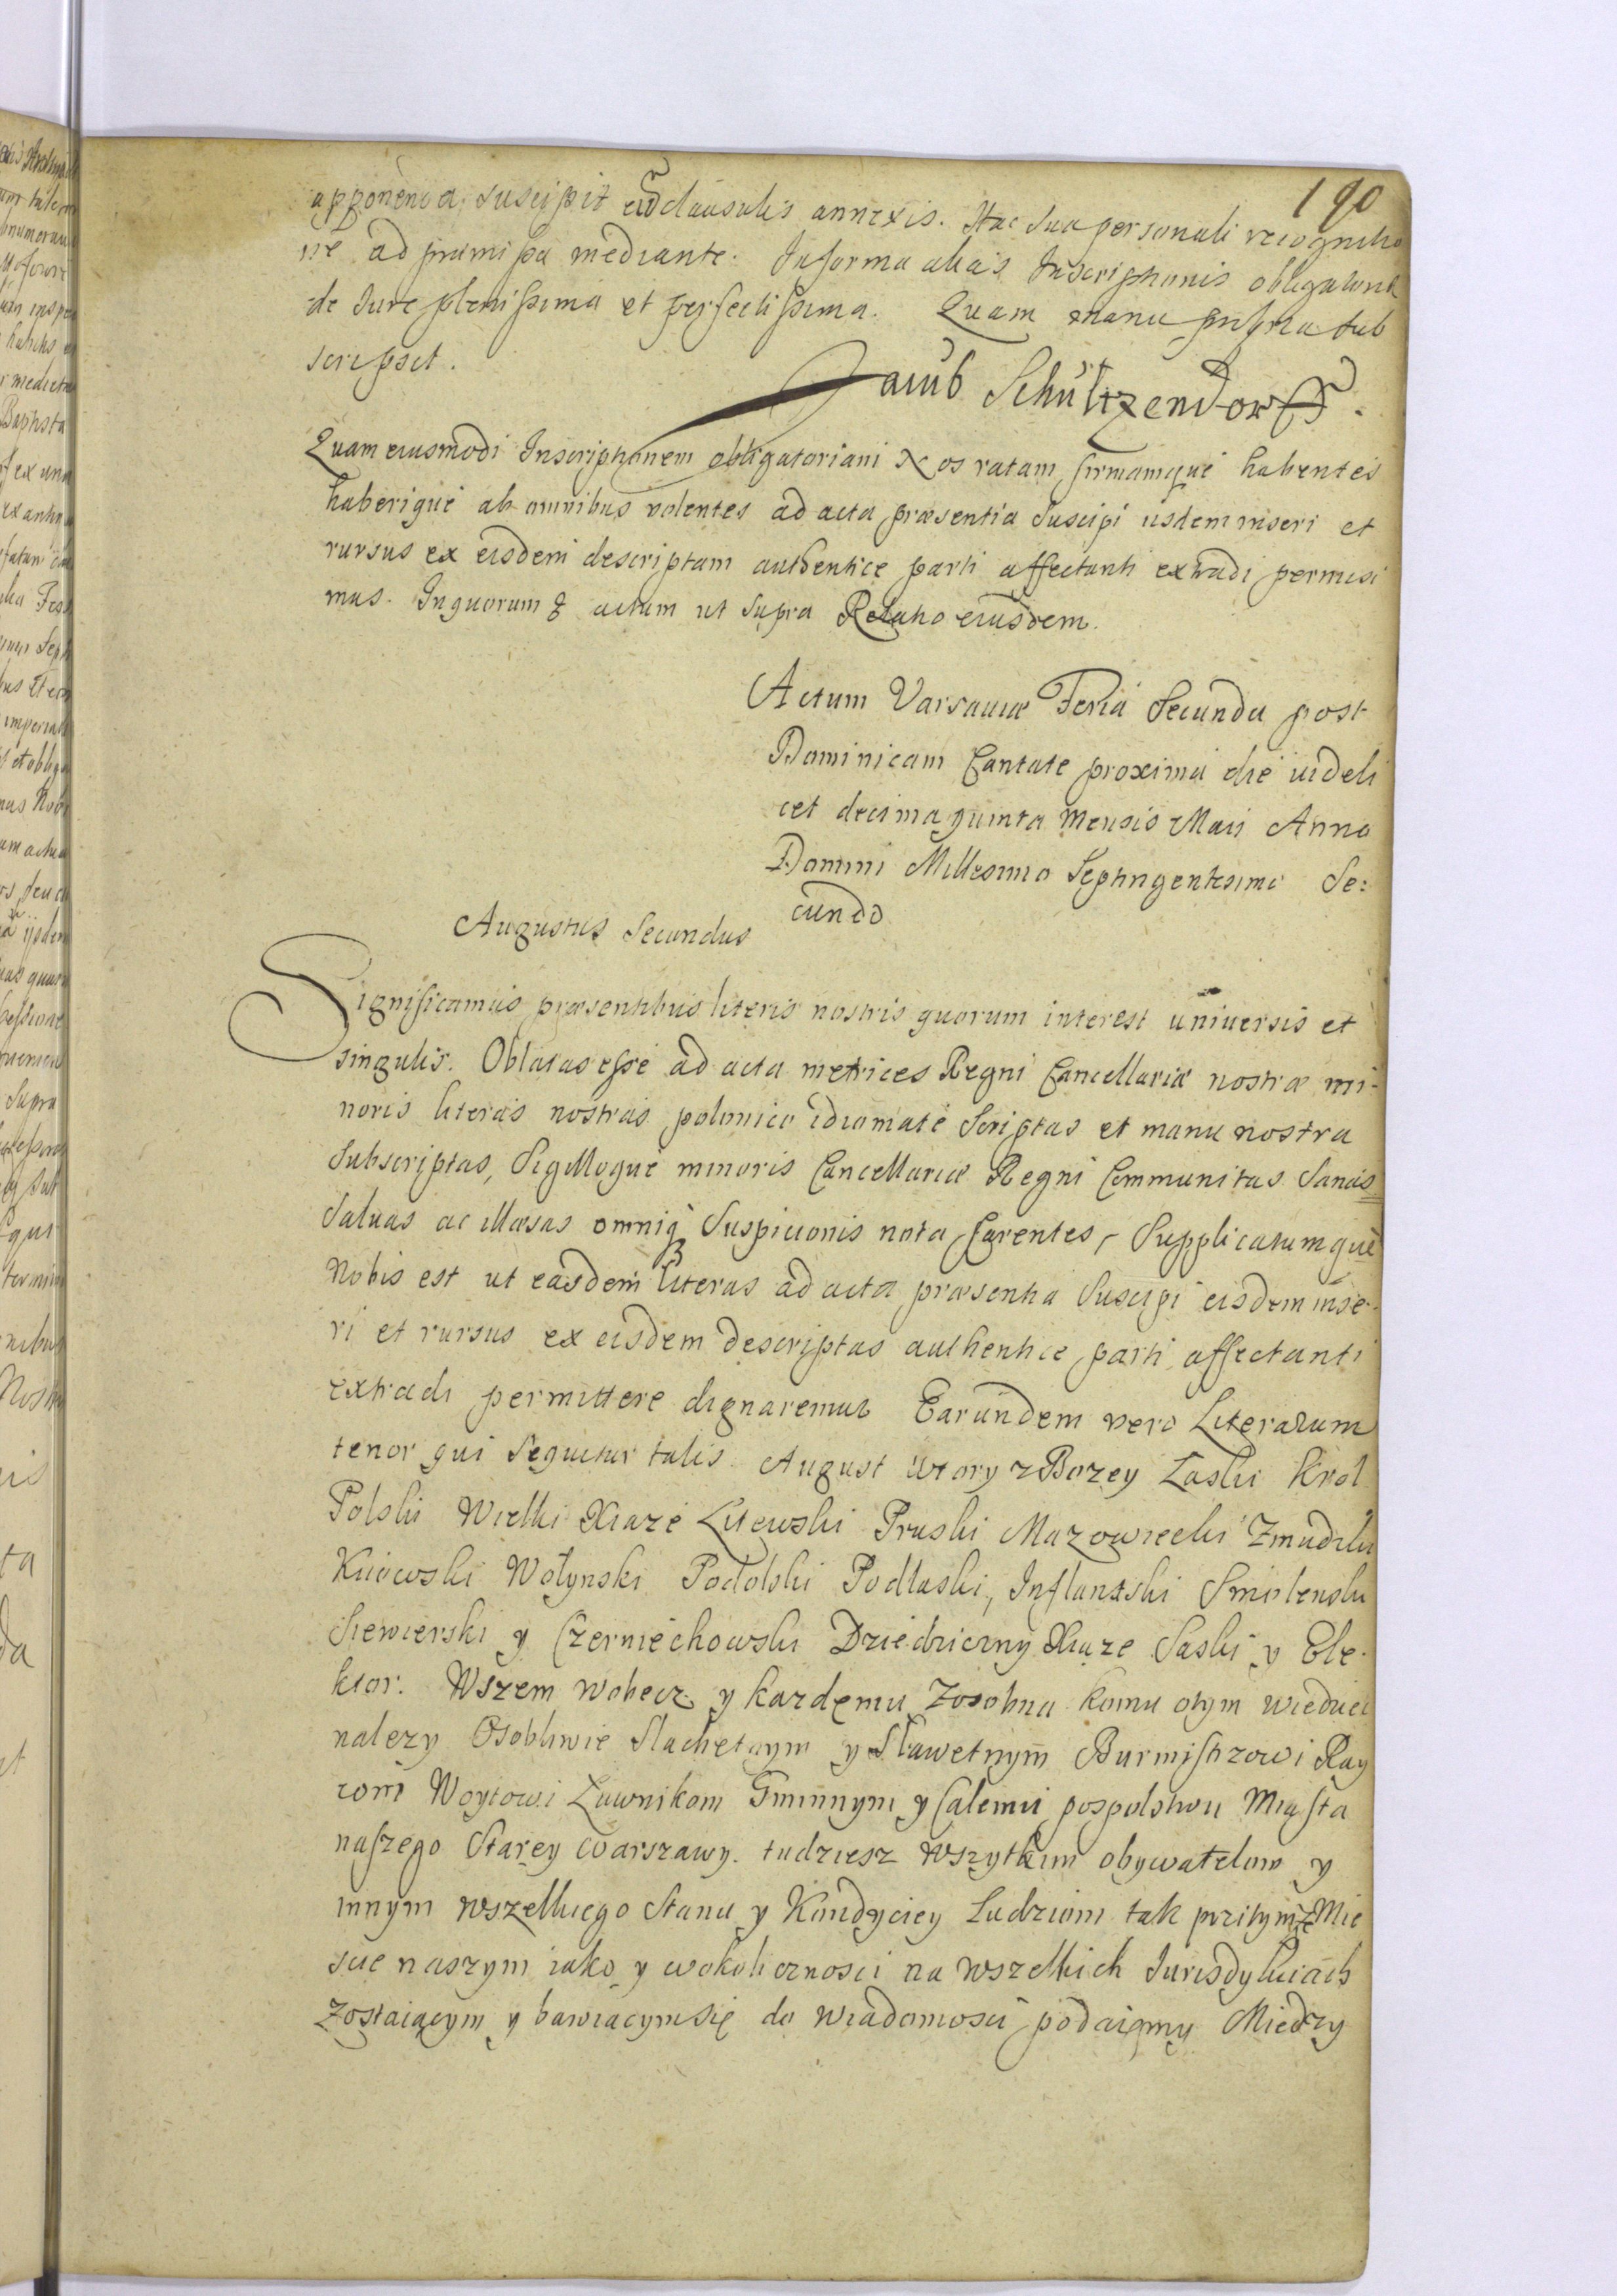 190
apponenda suscipit cum clausulis annexis. Hac sua personali recognitio
ne ad præmissa mediante. In forma alias Inscriptionis obligatoriæ
de Jure plenissima et perfectissima. Quam manu propria sub
scripsit.
Jacub Schultzendorff.
Quam eiusmodi Inscriptionem obligatoriam Nos ratam firmamque habentes
haberique ab omnibus volentes ad acta præsentia suscipi iisdem inseri et
rursus ex eisdem descriptam authentice parti affectanti extradi permisi
mus. In quorum & actum ut supra Relatio eiusdem.
Actum Varsaviæ Feria Secunda post
Dominicam Cantate proxima die videli
cet decima quinta Mensis Maii Anno
Domini Millesimo Septingentesimo Se:
cundo
Augustus Secundus
Significamus præsentibus literis nostris quorum interest universis et
singulis. Oblatas esse ad acta metrices Regni Cancellariæ nostræ mi-
noris literas nostras polonico idiomate Scriptas et manu nostra
Subscriptas, Sigilloque minoris Cancellariæ Regni Communitas Sanas
Salvas ac illæsas omniq Suspicionis nota Carentes, Supplicatumque
Nobis est ut easdem literas ad acta præsentia Suscipi eisdem inse-
ri et rursus ex eisdem descriptas authentice parti affectanti
extradi permittere dignaremur Earundem vero Literarum
tenor qui Sequitur talis. August wtory z Bozey Laski Krol
Polski Wielki Xiaze Litewski Pruski Mazowiecki Zmudzki
Kiiowski Wołynski Podolski Podlaski, Inflantski Smolenski
Siewierski y Czerniechowski Dziedziczny Xiąze Saski y Ele-
ktor. Wszem wobecz y kazdemu Zosobna komu otym wiedziec
nalezy Osobliwie Slachetnym y Sławetnym Burmistrzowi Ray
com Woytowi Ławnikom Gminnym y Całemu pospolstwu Miasta
naszego Starey Warszawy. tudziesz Wszytkim obywatelom y
innym wszelkiego Stanu y Kondyciey Ludziom tak przitymze Mie
scie naszym iako y wokolicznosci na wszelkich Jurisdykciach
Zostaiącym y bawiacym się do wiadomosci podaięmy Miedzy